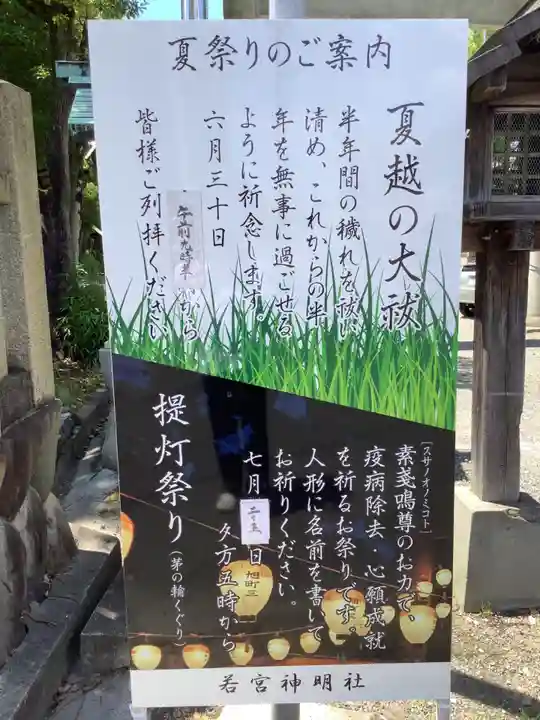 夏祭りのご案内
夏越の大祓
半年間の穢れを祓い
清め、これからの半
年を無事に過ごせる
ように祈念します。
六月三十日
午前九時半から
皆様ご列拝ください
提灯祭り(茅の輪くぐり)
[スサノオノミコト]
素戔嗚尊のお力で、
疫病除去・心願成就
を祈るお祭りです。
人形に名前を書いて
お祈りください。
七月二十五日
夕方五時から
旭町三
若宮神明社